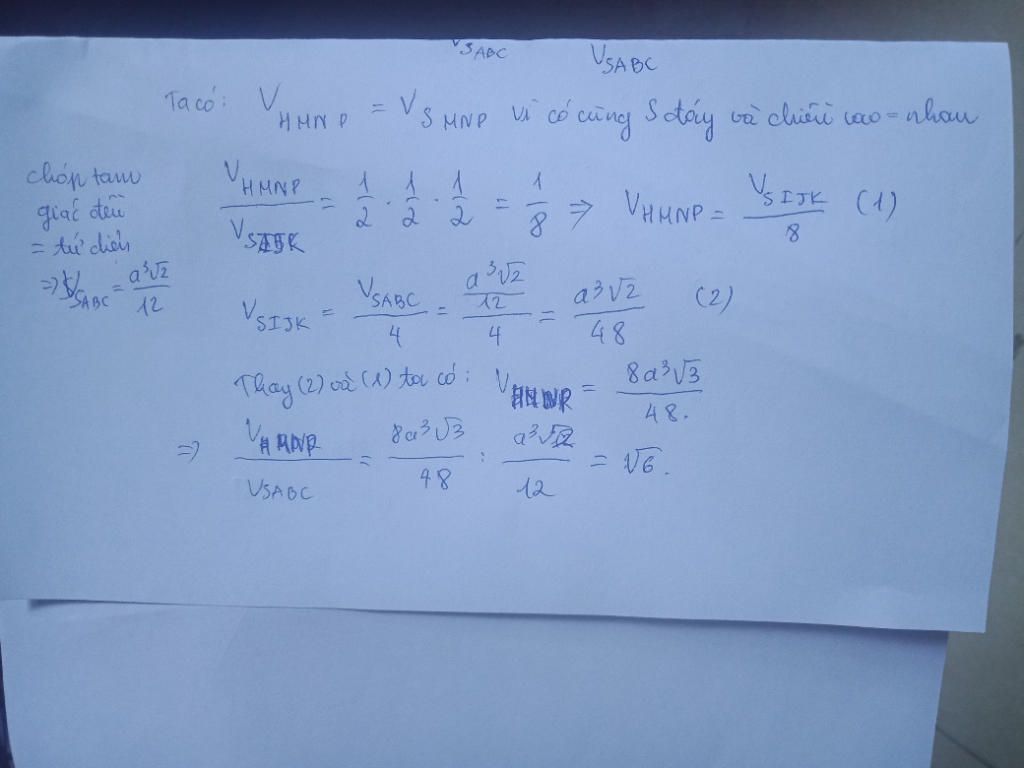 VSABC VSABC
Ta có: VHMNP = VSMNP vì có cùng S đáy và chiều cao = nhau
chóp tam
giác đều
= tứ diện
=> VSABC = a³√2/12
VHMNP/VSIJK = 1/2 · 1/2 · 1/2 = 1/8 => VHMNP = VSIJK/8 (1)
VSIJK = VSABC/4 = (a³√2/12)/4 = a³√2/48 (2)
Thay (2) và (1) ta có: VHMNP = 8a³√3/48.
=> VHMNP/VSABC = 8a³√3/48 : a³√2/12 = √6.